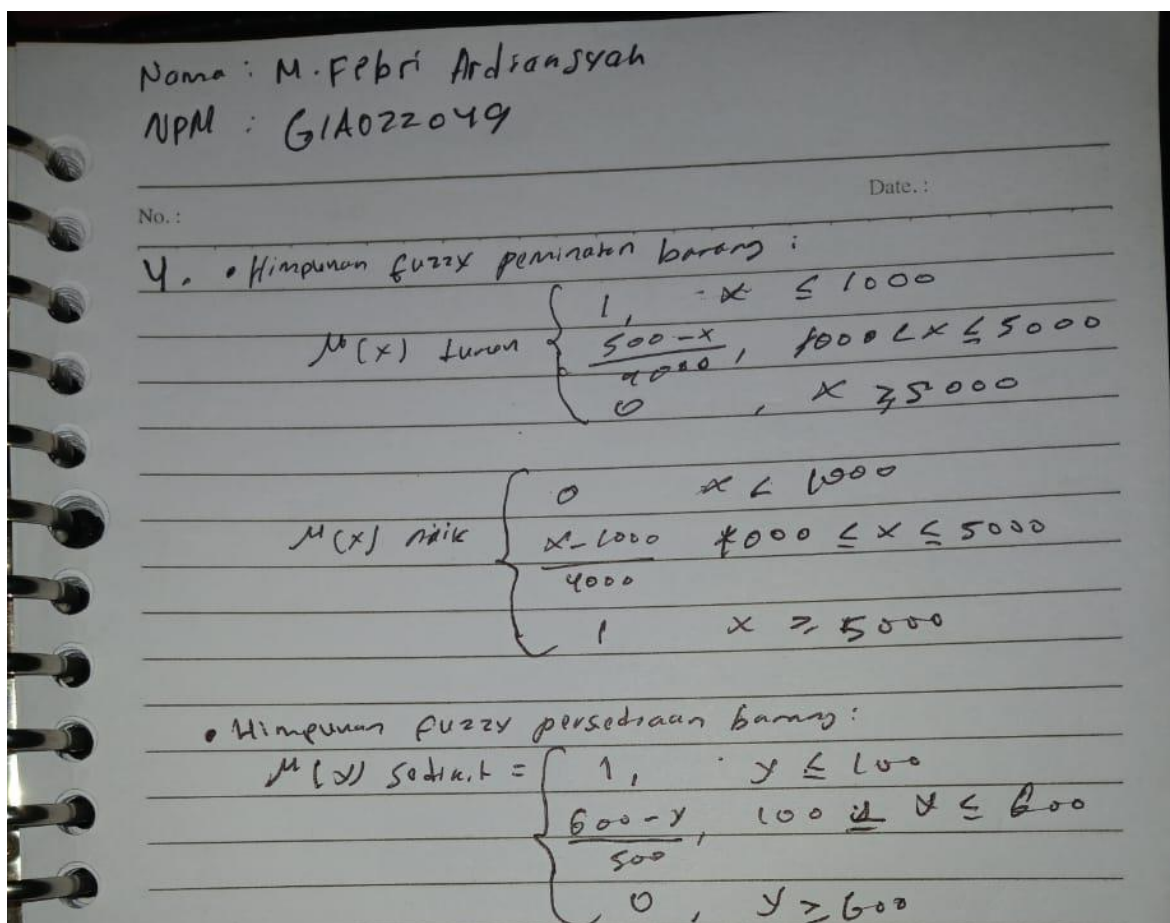 Nama : M. Febri Ardiansyah
NPM : G1A022049
No. : Date. :
4. • Himpunan fuzzy peminatan barang :
μ(x) turun { 1, x ≤ 1000
500-x / 4000, 1000 < x ≤ 5000
0, x ≥ 5000
μ(x) naik { 0 x < 1000
x-1000 / 4000 1000 ≤ x ≤ 5000
1 x ≥ 5000
• Himpunan fuzzy persediaan barang :
μ(y) sedikit = { 1, y ≤ 100
600-y / 500, 100 ≤ y ≤ 600
0, y ≥ 600